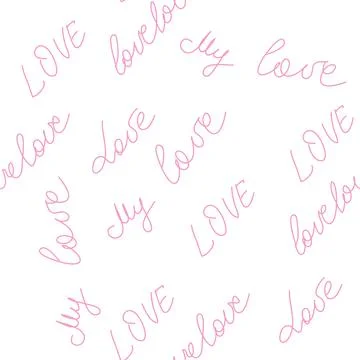 LOVE
lovelo
My
love
relove
Love
love
LOVE
love
My
LOVE
lovelo
My
LOVE
relove
Love